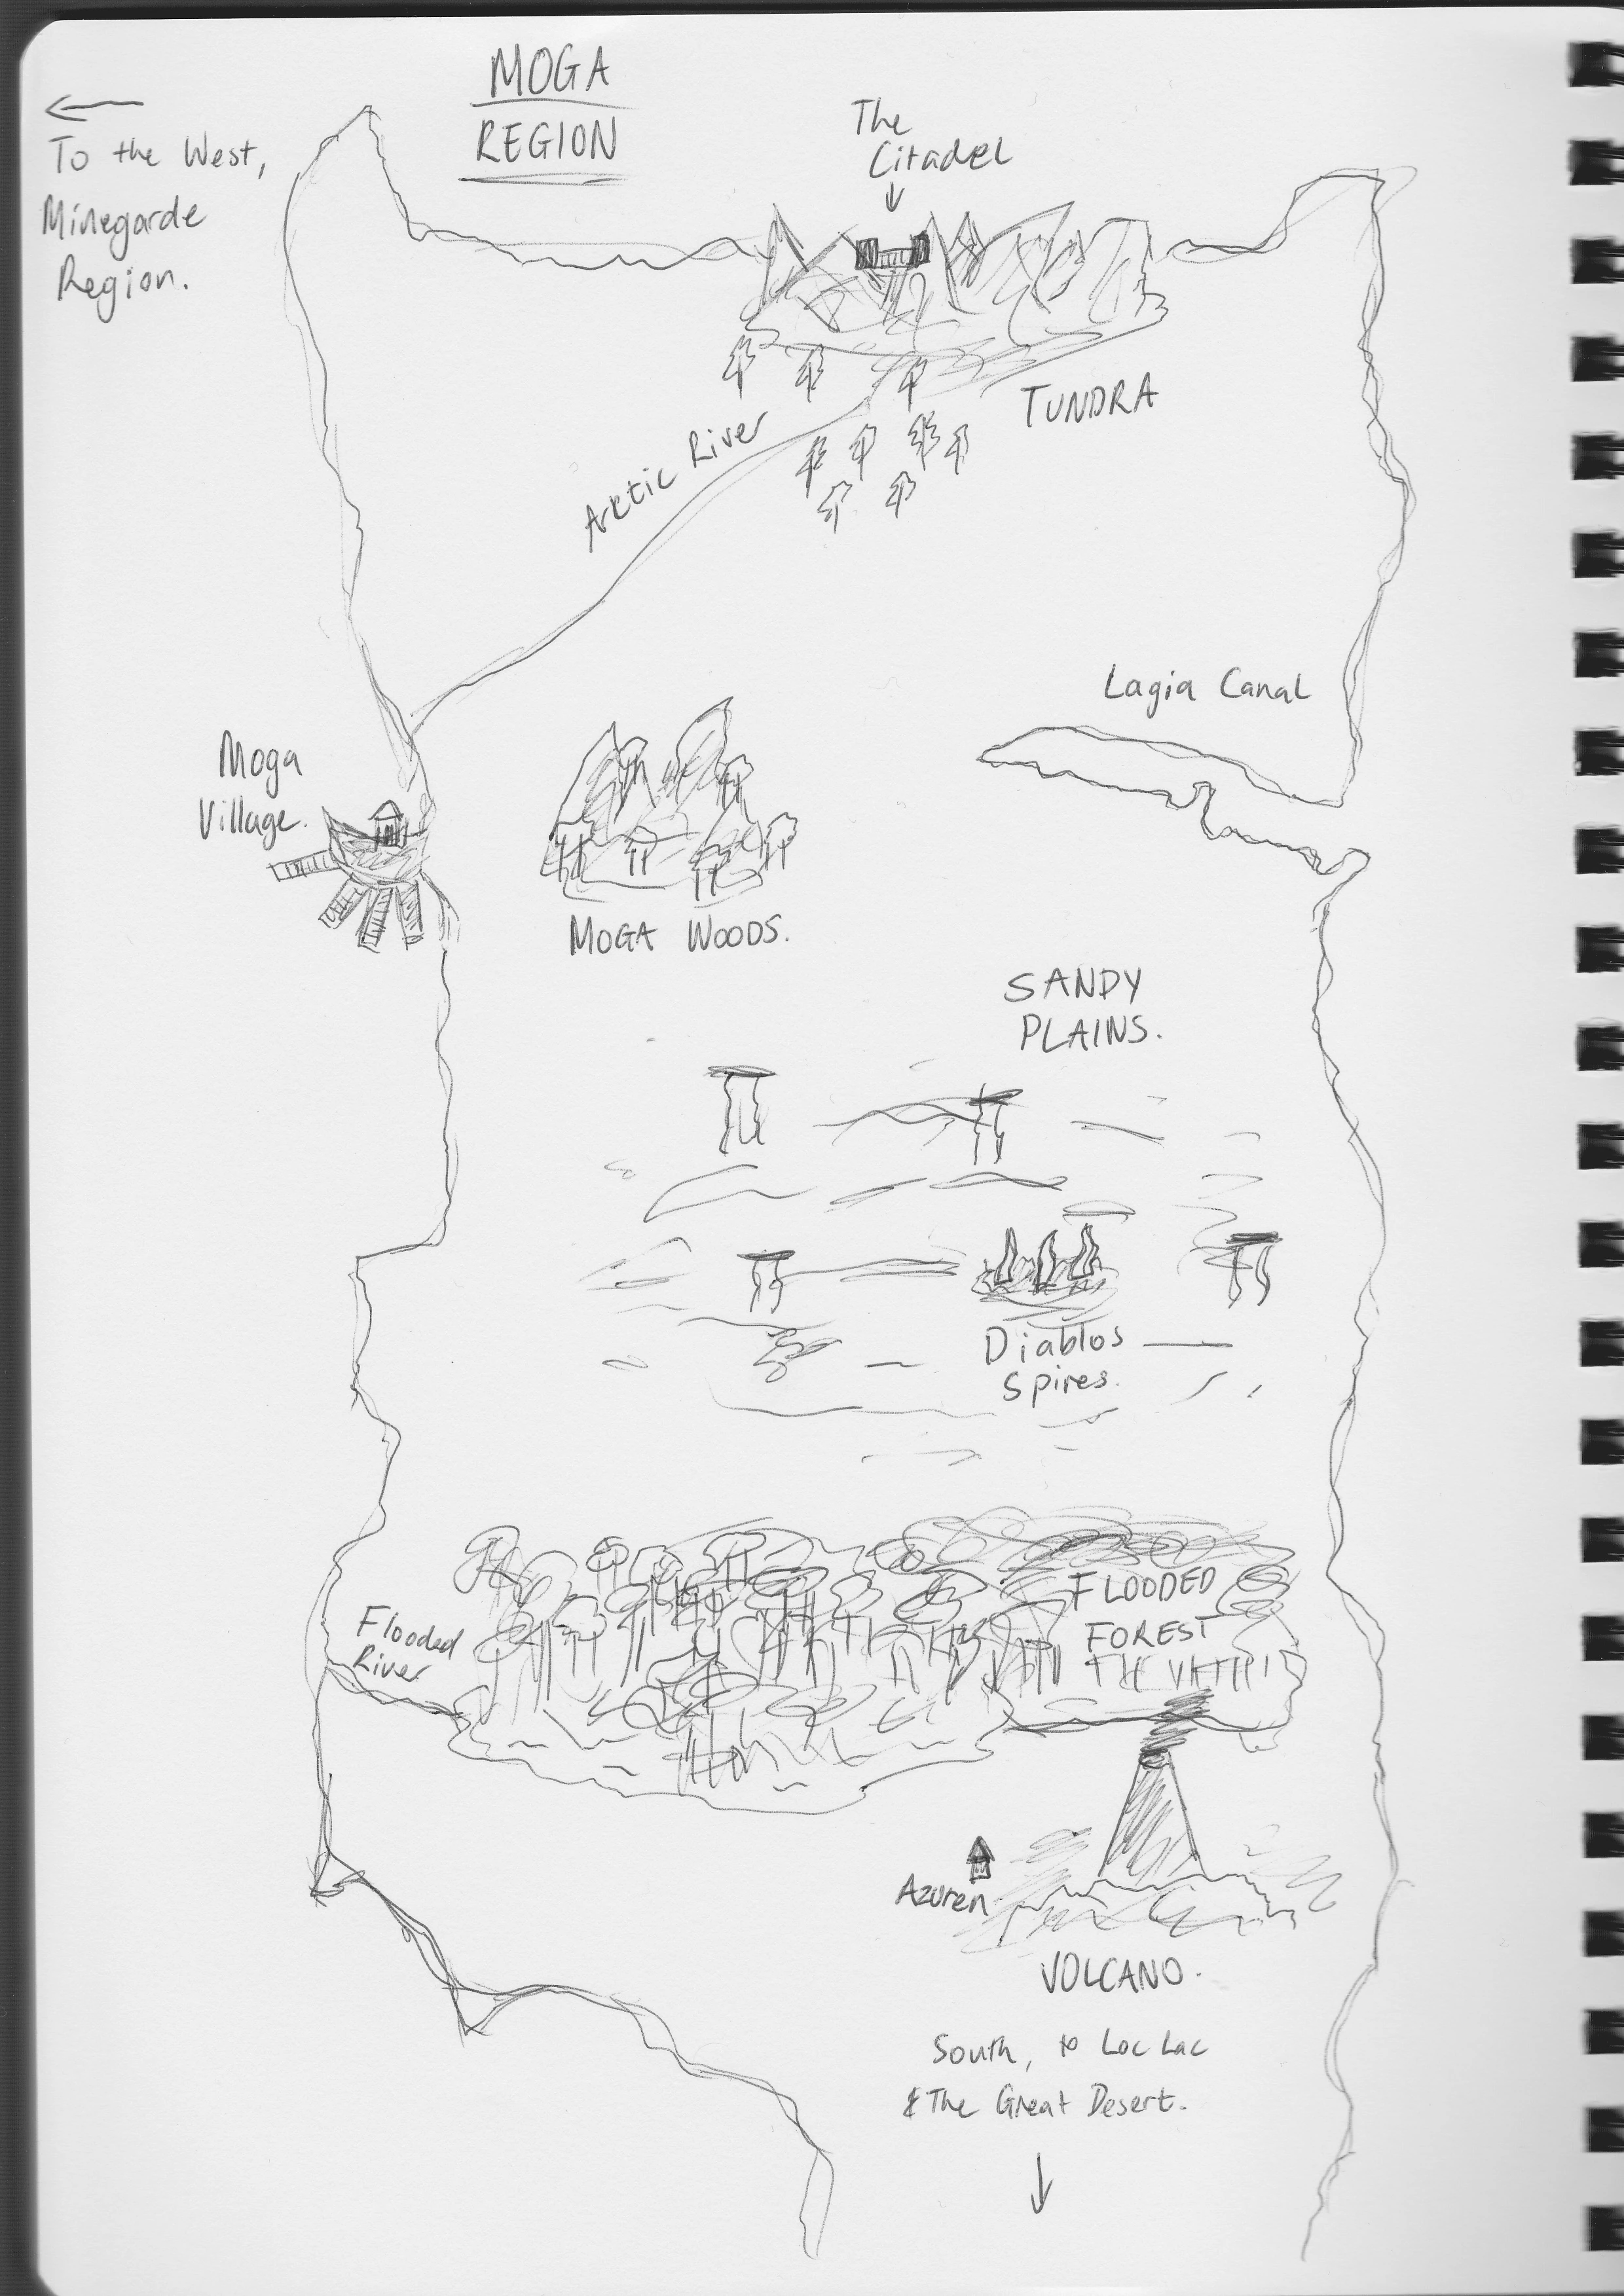 MOGA
REGION
←
To the West,
Minegarde
Region.
The
Citadel
↓
TUNDRA
Arctic River
Lagia Canal
Moga
Village.
MOGA WOODS.
SANDY
PLAINS.
Diablos
Spires.
FLOODED
FOREST
Flooded
River
Azuren
VOLCANO.
South, to Loc Lac
& The Great Desert.
↓